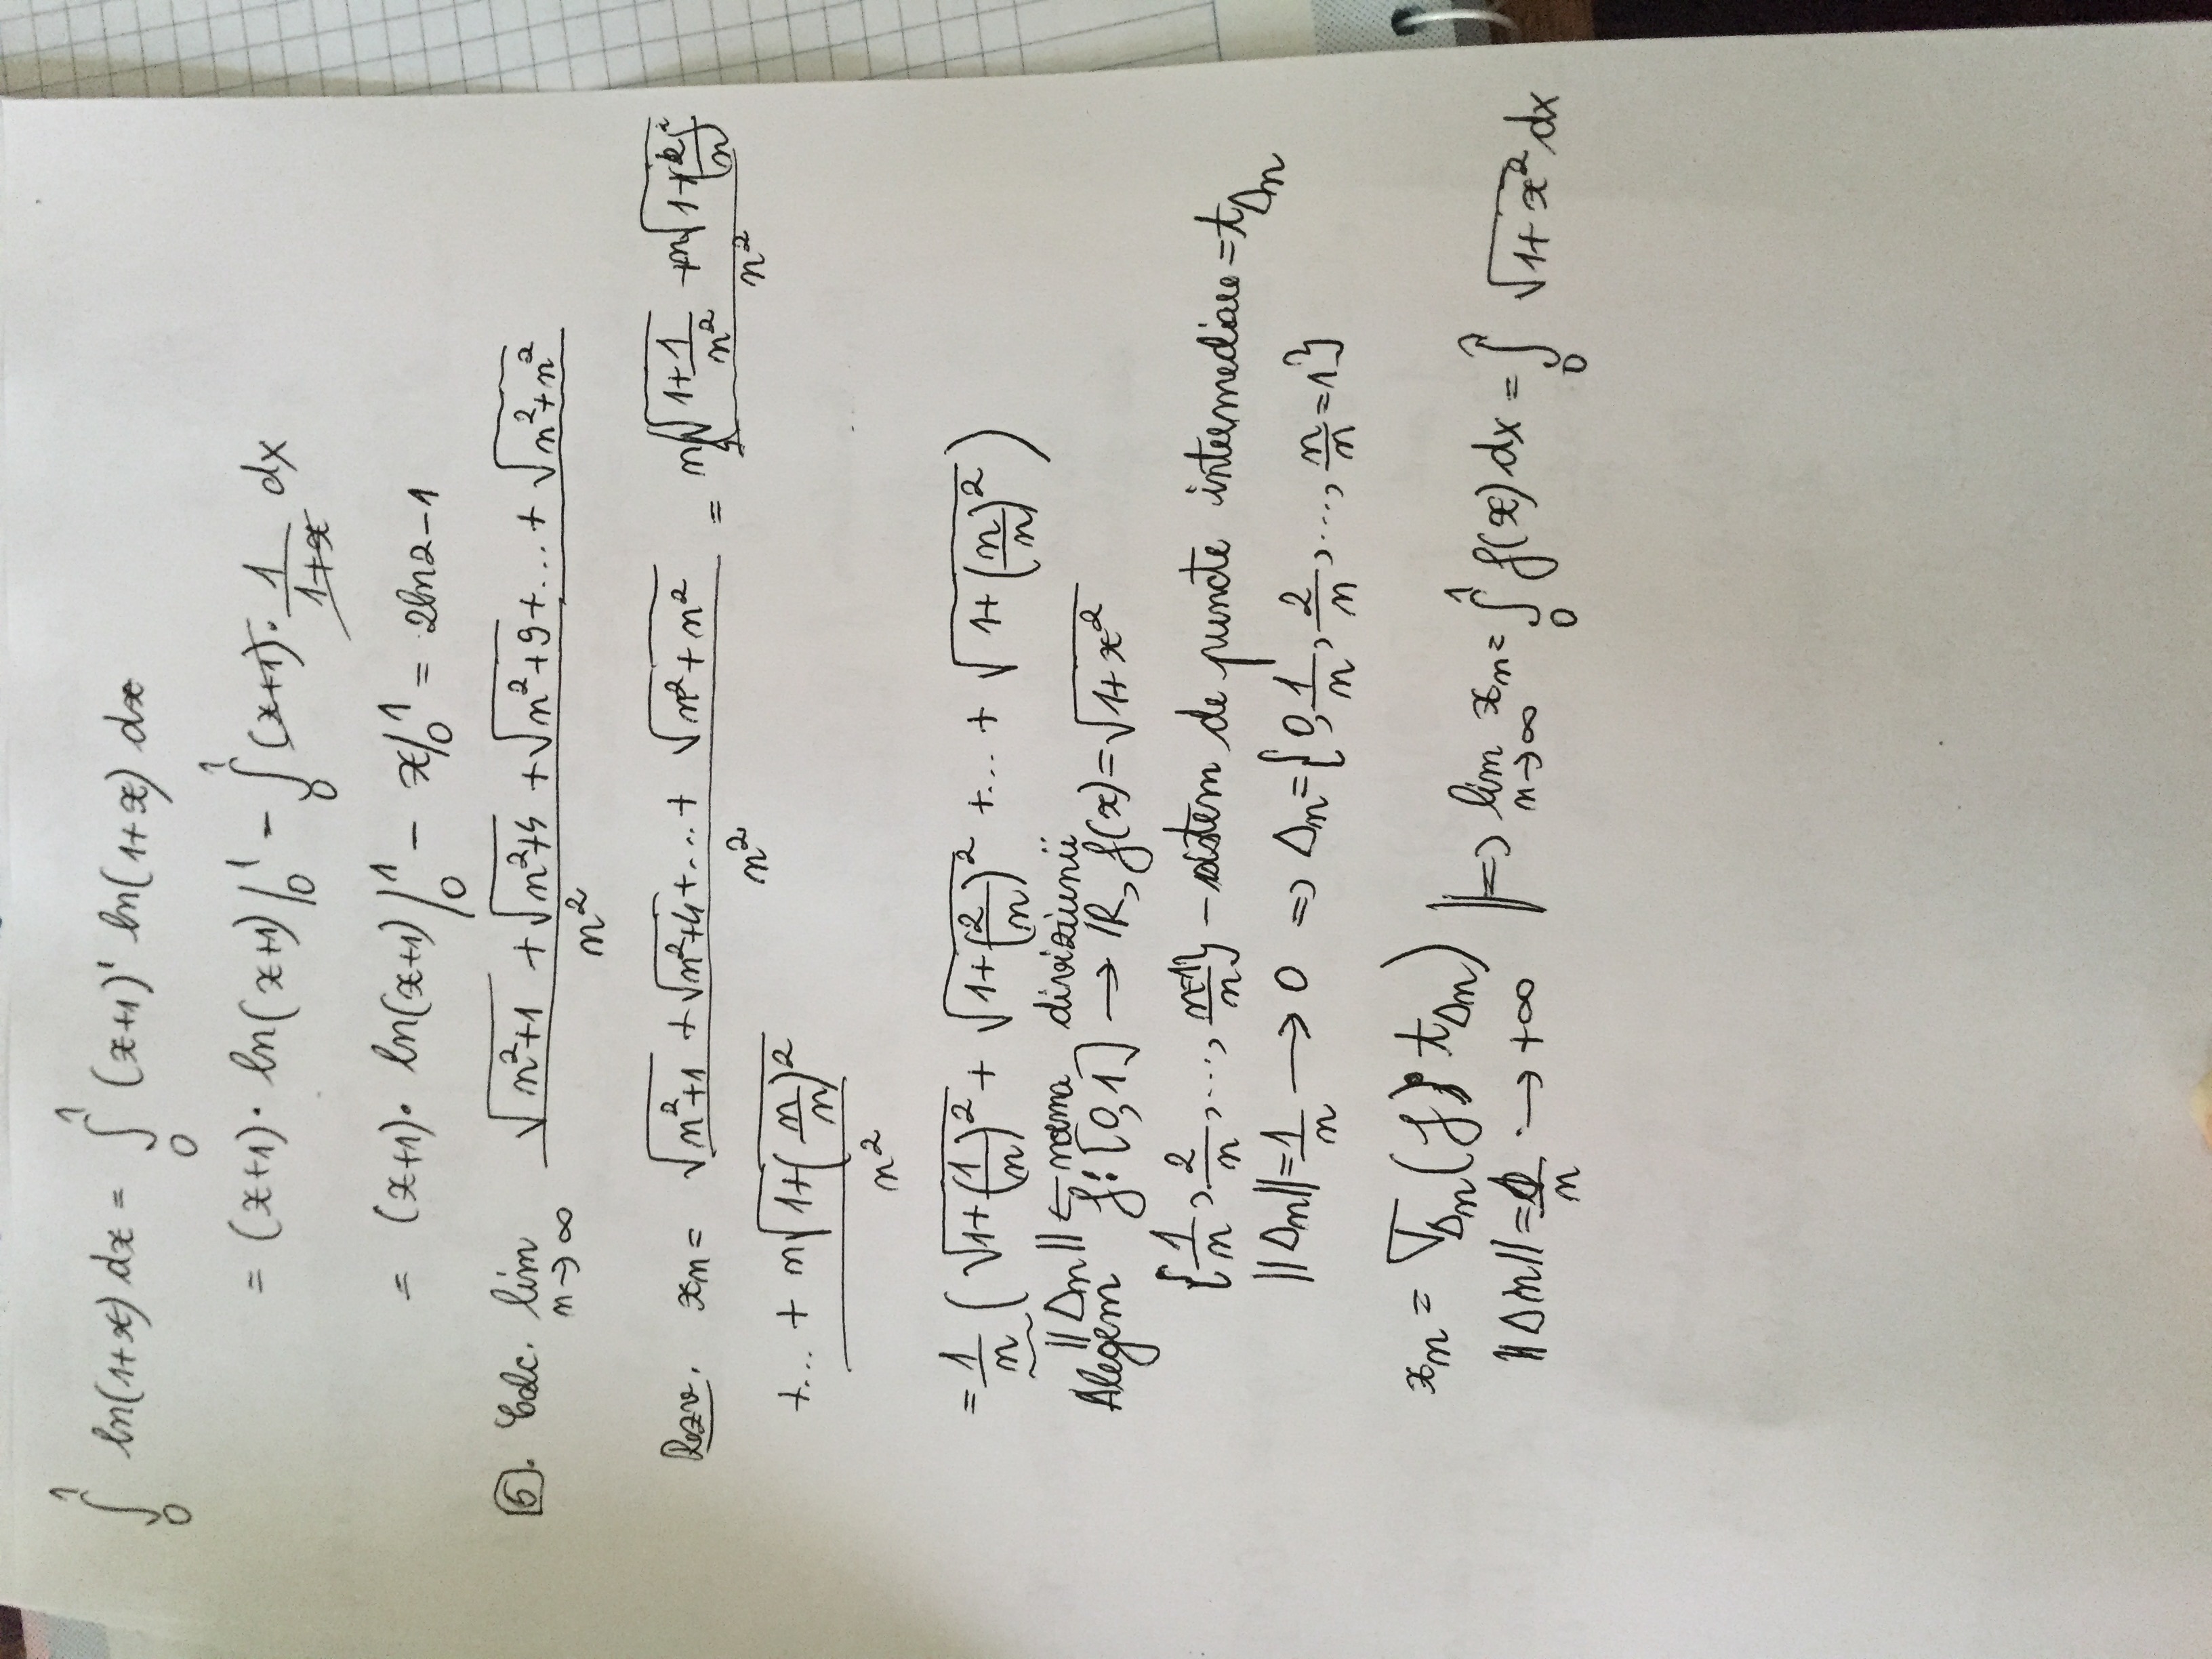 ∫₀¹ ln(1+x) dx = ∫₀¹ (x+1)' ln(1+x) dx
= (x+1) · ln(x+1) |₀¹ − ∫₀¹ (x+1) · 1/(1+x) dx
= (x+1) · ln(x+1) |₀¹ − x |₀¹ = 2ln2 − 1
6. Calc. lim n→∞ (√(n²+1) + √(n²+4) + √(n²+9) + ... + √(n²+n²)) / n²
Rezv. xn = (√(n²+1) + √(n²+4) + ... + √(n²+n²)) / n² = (n√(1+1/n²) + n√(1+(2/n)²)) / n²
+ ... + n√(1+(n/n)²) / n²
= 1/n (√(1+(1/n)²) + √(1+(2/n)²) + ... + √(1+(n/n)²))
||Δn|| ← norma diviziunii
Alegem f: [0,1] → ℝ, f(x) = √(1+x²)
{1/n, 2/n, ..., n/n} − sistem de puncte intermediare = tΔn
||Δn|| = 1/n → 0 ⇒ Δn = {0, 1/n, 2/n, ..., n/n = 1}
xn = ∇Δn (f, tΔn)
||Δn|| = 1/n → +∞ ||⇒ lim n→∞ xn = ∫₀¹ f(x) dx = ∫₀¹ √(1+x²) dx